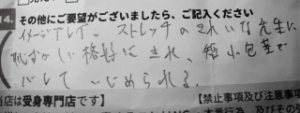 14. その他にご要望がございましたら、ご記入ください
イメージプレイ。ストレッチのきれいな先生に
恥ずかしい格好はされ、短小包茎で
バレて いじめられる。
当店は受身専門店です】 【禁止事項及び注意